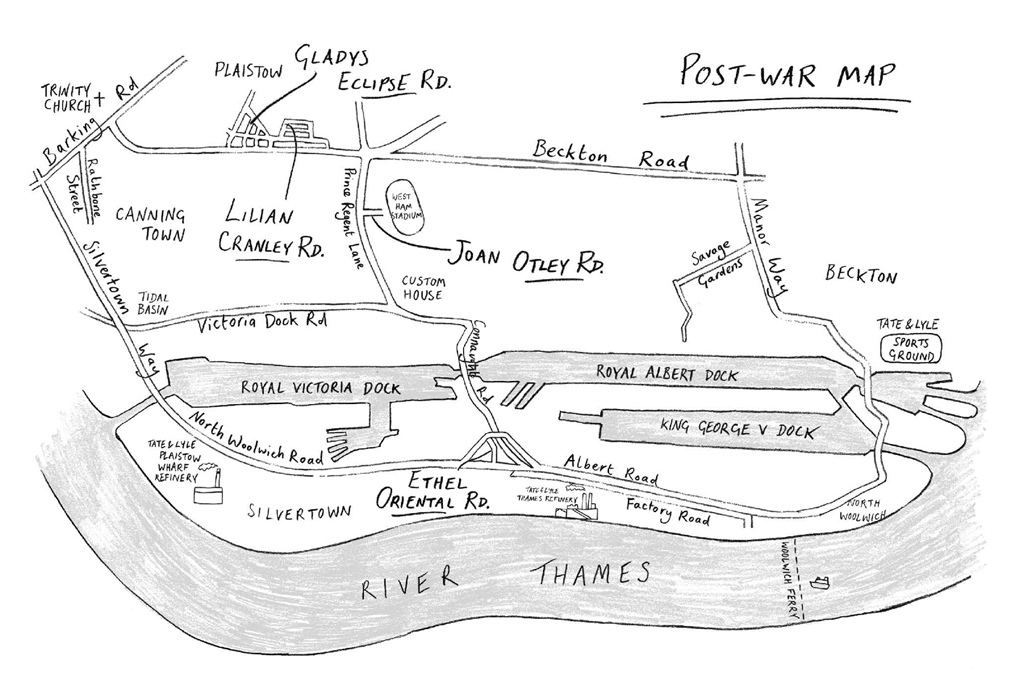 POST-WAR MAP
GLADYS
ECLIPSE RD.
PLAISTOW
TRINITY
CHURCH
Barking Rd
Beckton Road
Rathbone
Street
Prince Regent Lane
WEST
HAM
STADIUM
CANNING
TOWN
LILIAN
CRANLEY RD.
JOAN OTLEY RD.
Manor Way
Savage
Gardens
BECKTON
Silvertown Way
CUSTOM
HOUSE
TIDAL
BASIN
Victoria Dock Rd
Connaught Rd
TATE & LYLE
SPORTS
GROUND
ROYAL VICTORIA DOCK
ROYAL ALBERT DOCK
KING GEORGE V DOCK
North Woolwich Road
TATE & LYLE
PLAISTOW
WHARF
REFINERY
Albert Road
ETHEL
ORIENTAL RD.
TATE & LYLE
THAMES REFINERY
Factory Road
SILVERTOWN
NORTH
WOOLWICH
WOOLWICH FERRY
RIVER THAMES